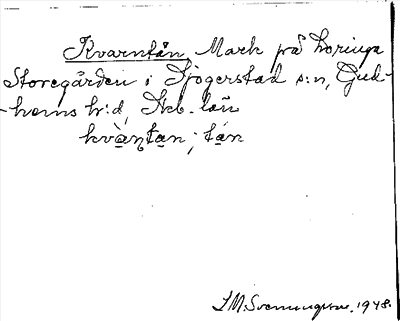 Kvarntån Mark på Loringa
Storegården i Sjogerstad s:n, Gud-
-hems h:d, Skb. län
kvàṇtan; tán
I M. Svenningsson. 1948.